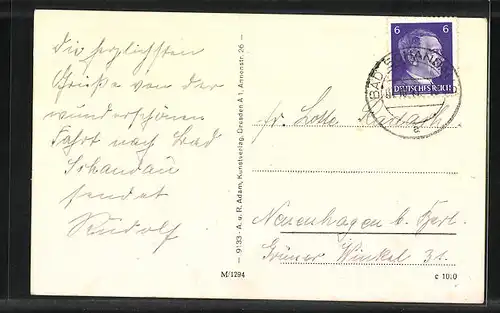 Die herzlichsten
Grüße von der
wunderschönen
Fahrt nach Bad
Schandau
sendet
Rudolf
— 9133 - A. u. R. Adam, Kunstverlag, Dresden A 1, Annenstr. 26 —
M/1294
6 6
DEUTSCHES REICH
BAD SCHANDAU
a
Fr. Lotte
Neuenhagen b. Berl.
Grüner Winkel 31.
c 1010